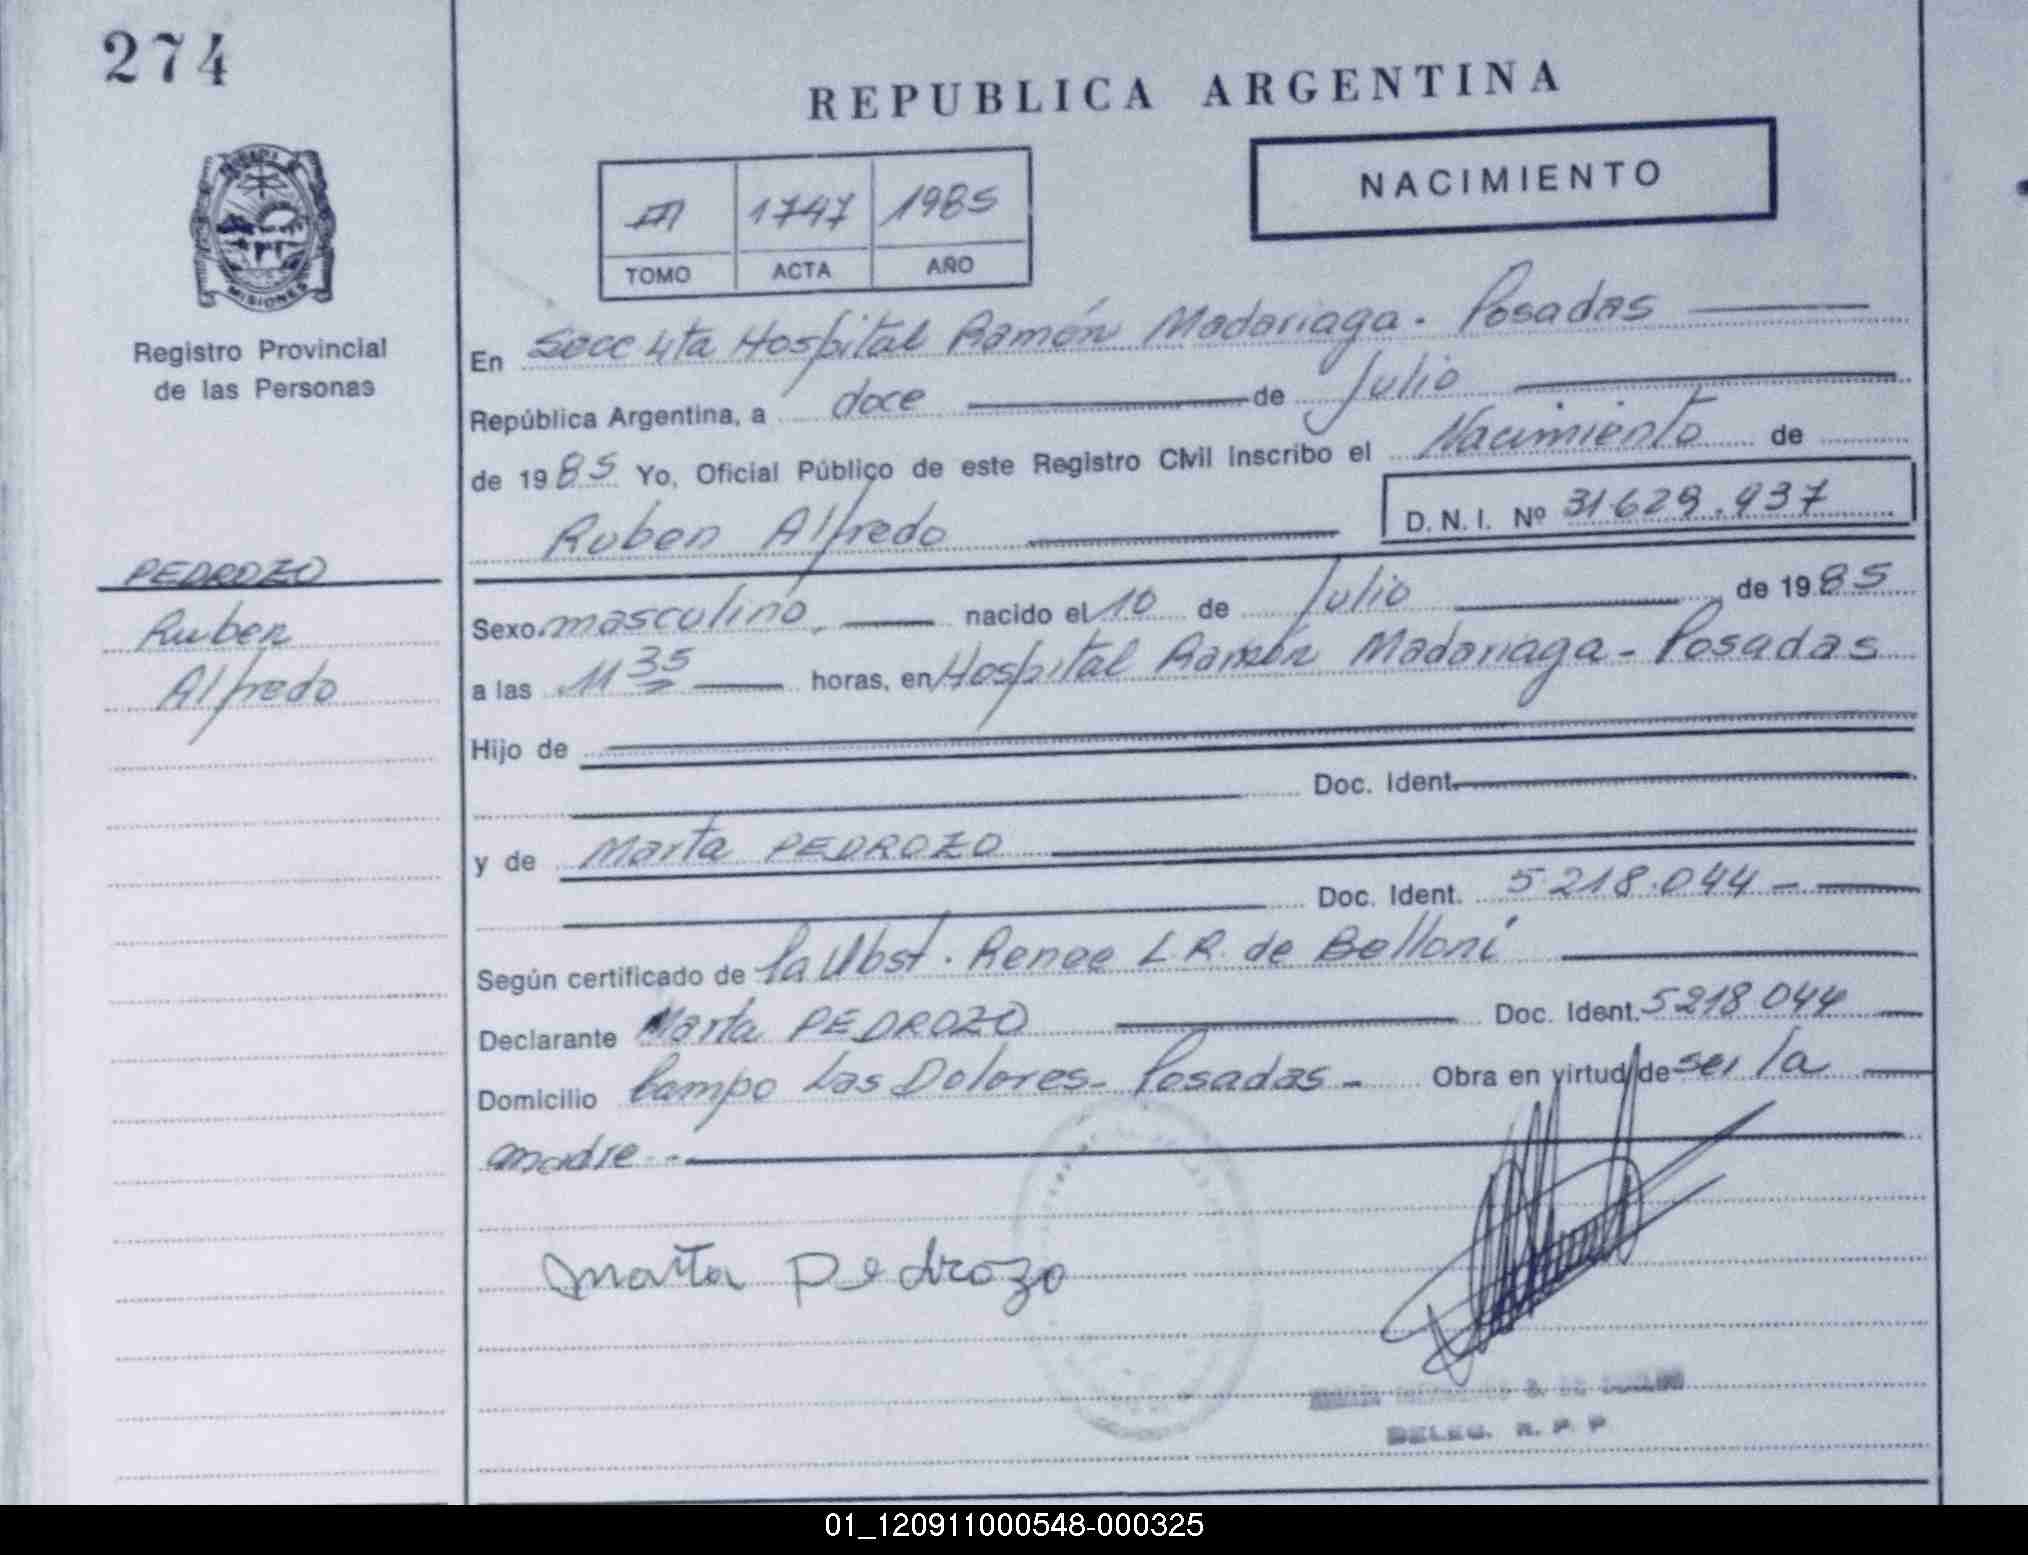 274
REPUBLICA ARGENTINA
NACIMIENTO
III 1747 1985
TOMO ACTA AÑO
MISIONES
Registro Provincial
de las Personas
En Secc 4ta Hospital Ramón Madariaga - Posadas
República Argentina, a doce de Julio
de 1985 Yo, Oficial Público de este Registro Civil inscribo el Nacimiento de
Ruben Alfredo D. N. I. Nº 31.629.937
PEDROZO
Ruben
Alfredo
Sexo masculino, nacido el 10 de Julio de 1985
a las 11 35 horas, en Hospital Ramón Madariaga - Posadas
Hijo de
Doc. Ident.
y de Marta PEDROZO
Doc. Ident. 5.218.044 -
Según certificado de la Obst. Renee L R. de Belloni
Declarante Marta PEDROZO Doc. Ident. 5218044
Domicilio Campo Las Dolores - Posadas - Obra en virtud de ser la
madre. -
Marta Pedrozo
DELEG. R. P. P.
01_120911000548-000325